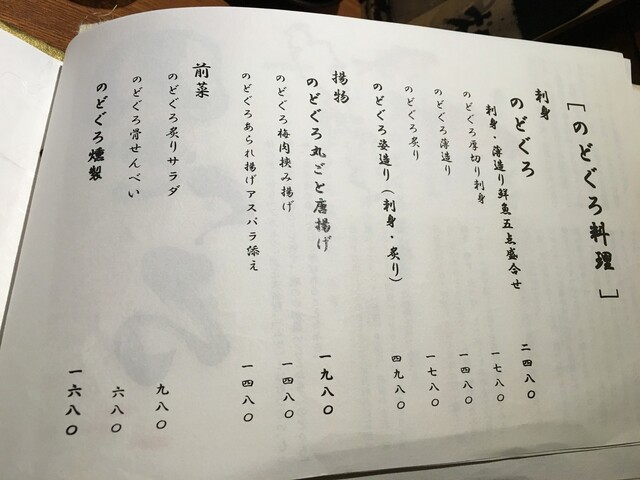 ［のどぐろ料理］
刺身
のどぐろ
刺身・薄造り鮮魚五点盛合せ 二四八〇
のどぐろ厚切り刺身 一七八〇
のどぐろ薄造り 一四八〇
のどぐろ炙り 一七八〇
のどぐろ姿造り（刺身・炙り） 四九八〇
揚物
のどぐろ丸ごと唐揚げ 一九八〇
のどぐろ梅肉挟み揚げ 一四八〇
のどぐろあられ揚げアスパラ添え 一四八〇
前菜
のどぐろ炙りサラダ 九八〇
のどぐろ骨せんべい 六八〇
のどぐろ燻製 一六八〇